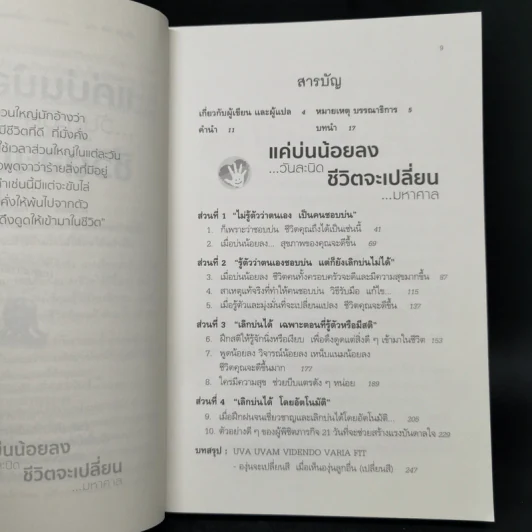 ส่วนใหญ่มักอ้างว่า
มีชีวิตที่ดี ที่มั่งคั่ง
ใช้เวลาส่วนใหญ่ในแต่ละวัน
พูดจาว่าร้ายสิ่งที่มีอยู่
ทำเช่นนี้มีแต่จะขับไล่
คั่งให้พ้นไปจากตัว
ดึงดูดให้เข้ามาในชีวิต"
บ่นน้อยลง
ชีวิตจะเปลี่ยน
...มหาศาล
9
สารบัญ
เกี่ยวกับผู้เขียน และผู้แปล 4 หมายเหตุ บรรณาธิการ 5
คำนำ 11 บทนำ 17
แค่บ่นน้อยลง
...วันละนิด ชีวิตจะเปลี่ยน
...มหาศาล
ส่วนที่ 1 "ไม่รู้ตัวว่าตนเอง เป็นคนชอบบ่น"
1. ก็เพราะว่าชอบบ่น ชีวิตคุณถึงได้เป็นเช่นนี้ 41
2. เมื่อบ่นน้อยลง... สุขภาพของคุณจะดีขึ้น 69
ส่วนที่ 2 "รู้ตัวว่าตนเองชอบบ่น แต่ก็ยังเลิกบ่นไม่ได้"
3. เมื่อบ่นน้อยลง ชีวิตคนทั้งครอบครัวจะดีและมีความสุขมากขึ้น 87
4. สาเหตุแท้จริงที่ทำให้คนชอบบ่น วิธีรับมือ แก้ไข... 115
5. เมื่อรู้ตัวและมุ่งมั่นที่จะเปลี่ยนแปลง ชีวิตคุณจะดีขึ้น 137
ส่วนที่ 3 "เลิกบ่นได้ เฉพาะตอนที่รู้ตัวหรือมีสติ"
6. ฝึกสติให้รู้จักนิ่งหรือเงียบ เพื่อดึงดูดแต่สิ่งดี ๆ เข้ามาในชีวิต 153
7. พูดน้อยลง วิจารณ์น้อยลง เหน็บแนมน้อยลง
ชีวิตคุณจะดีขึ้นมาก 177
8. ใครมีความสุข ช่วยบีบแตรดัง ๆ หน่อย 189
ส่วนที่ 4 "เลิกบ่นได้ โดยอัตโนมัติ"
9. เมื่อฝึกฝนจนเชี่ยวชาญและเลิกบ่นได้โดยอัตโนมัติ... 205
10. ตัวอย่างดี ๆ ของผู้พิชิตภารกิจ 21 วันที่จะช่วยสร้างแรงบันดาลใจ 229
บทสรุป : UVA UVAM VIDENDO VARIA FIT
- องุ่นจะเปลี่ยนสี เมื่อเห็นองุ่นลูกอื่น (เปลี่ยนสี) 247